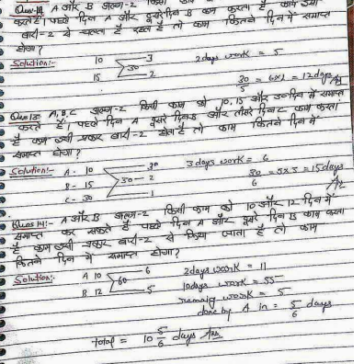 Ques-12 A और B अलग-2 किसी काम
करते हैं। पहले दिन A और दूसरे दिन B काम करता है काम इसी
बारी-2 से चलता है रहता है तो काम कितने दिन में समाप्त
होगा?
Solution:- 10 3 2days work = 5
30
15 2 30/5 = 6×2 = 12days Ans
Ques 13:- A, B, C अलग-2 किसी काम को 10, 15 और 30 दिन में
करते हैं। पहले दिन A दूसरे दिन B और तीसरे दिन C काम करता
है काम इसी प्रकार बारी-2 होता है तो काम कितने दिन में
समाप्त होगा?
Solution:- A - 10 3 3days work = 6
B - 15 30 - 2 30/6 = 5×3 = 15days
C - 30 1 Ans
Ques 14:- A और B अलग-2 किसी काम को 10 और 12 दिन में
समाप्त कर सकते हैं पहले दिन A और दूसरे दिन B काम करता
है काम इसी प्रकार बारी-2 से किया जाता है तो काम
कितने दिन में समाप्त होगा?
Solution:- A 10 6 2days work = 11
60 10days work = 55
B 12 5 work = 5
done by A in = 5/6 days
Total = 10 5/6 days Ans